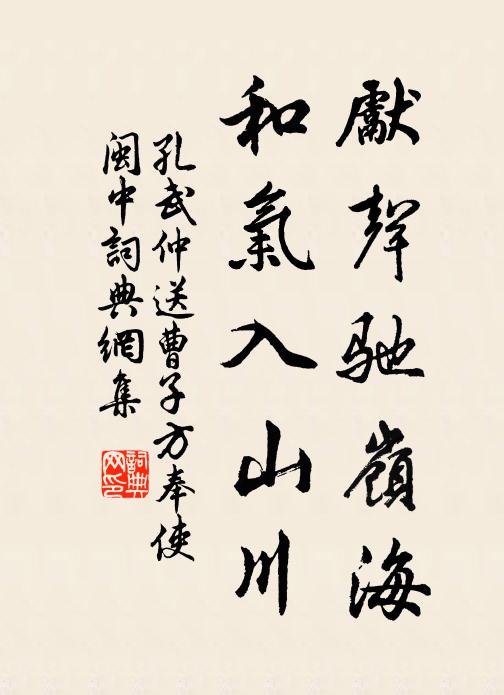 獻聲馳嶺海
和氣入山川
孔武仲送曹子方奉使
閩中詞典網集
詞典網印